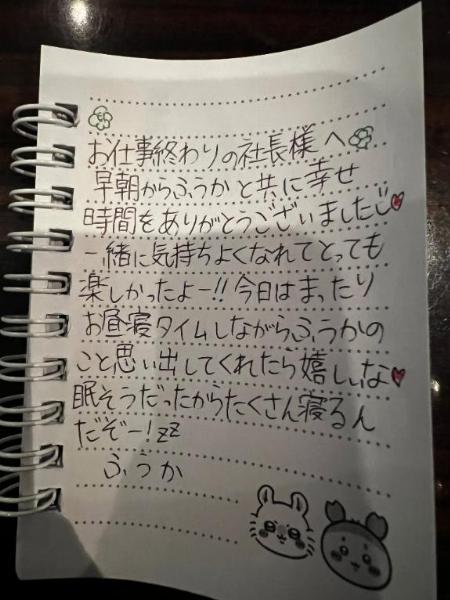 お仕事終わりの社長様へ
早朝からふうかと共に幸せ
時間をありがとうございましたじ
一緒に気持ちよくなれてとっても
楽しかったよー!!今日はまったり
お昼寝タイムしながらふうかの
こと思い出してくれたら嬉しいな
眠そうだったからたくさん寝るん
だぞー!zz
ふうか